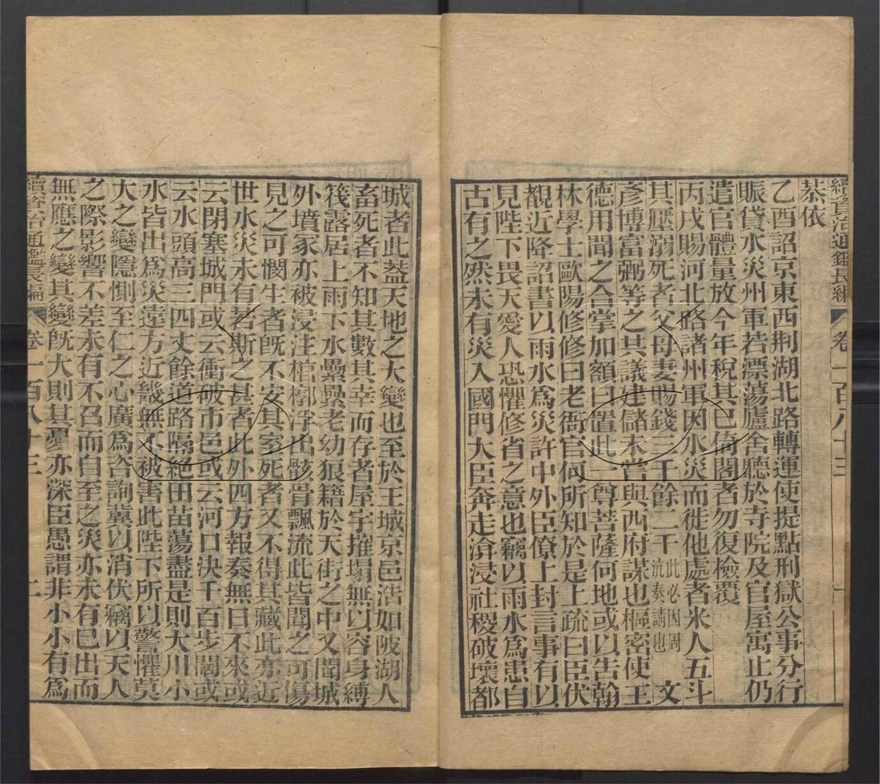 續資治通鑑長編 卷一百八十三 一
恭依
乙酉詔京東西荆湖北路轉運使提點刑獄公事分行
賑貸水災州軍若漂蕩廬舍聽於寺院及官屋寓止仍
遣官體量放今年稅其已倚閣者勿復檢覆
丙戌賜河北路諸州軍因水災而徙他處者米人五斗
其壓溺死者父母妻賜錢三千餘二千此必因周沆奏請也 文
彥博富弼等之共議建儲未嘗與西府謀也樞密使王
德用聞之合掌加額曰置此一尊菩薩何地或以告翰
林學士歐陽修修曰老衙官何所知於是上疏曰臣伏
覩近降詔書以雨水爲災許中外臣僚上封言事有以
見陛下畏天愛人恐懼修省之意也竊以雨水爲患自
古有之然未有災入國門大臣奔走渰浸社稷破壞都
城者此蓋天地之大變也至於王城京邑浩如陂湖人
畜死者不知其數其幸而存者屋宇摧塌無以容身縛
筏露居上雨下水纍纍老幼狼籍於天街之中又聞城
外墳冢亦被浸注棺槨浮出骸骨飄流此皆聞之可傷
見之可憫生者旣不安其室死者又不得其藏此亦近
世水災未有若斯之甚者此外四方報奏無日不來或
云閉塞城門或云衝破市邑或云河口決千百步闊或
云水頭高三四丈餘道路隔絕田苗蕩盡是則大川小
水皆出爲災遠方近畿無不被害此陛下所以警懼莫
大之變隱惻至仁之心廣爲咨詢冀以消伏竊以天人
之際影響不差未有不召而自至之災亦未有已出而
無應之變其變旣大則其憂亦深臣愚謂非小小有爲
續資治通鑑長編 卷一百八十三 二